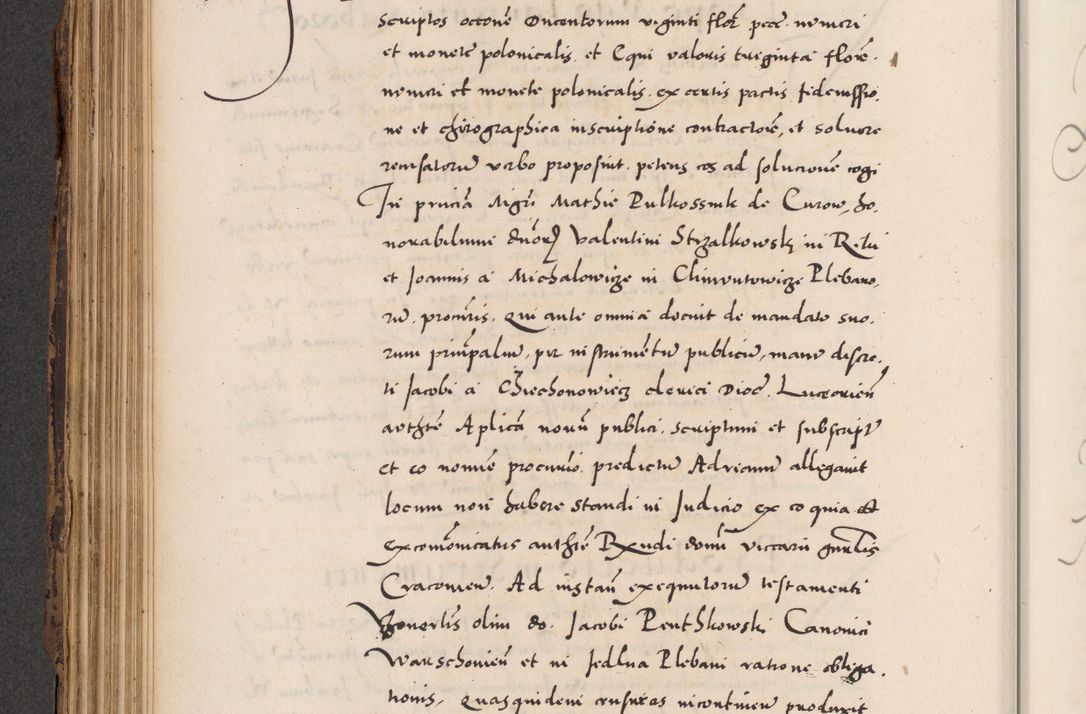 scriptos occone Ducentorum viginti flor pecc numeri
et monete polonicalis et Equi valoris triginta flore
numeri et monete polonicalis ex certis pactis fideiussio,
ne et chirographica inscriptione contractore, et soluere
recusatoru verbo proposuit petens eos ad solucione cogi
In pricia Mgri Mathie Pulkossnik de Curow, ho,
norabilium dnor Valentini Strzalkowski in
et Joannis a Michalowicze in Climuntowicze Plebano,
ru, procuris, Qui ante omnia docuit de mandato suo,
rum principaliu, per instrumentu publicu, manu discre,
ti Jacobi a Chiechonowiecz clerici Dioc Luceorien
authte Aplica notu publici scriptum et subscript
et eo nomine procurio predictu Adreanu allegauit
locum non habere standi in Judicio ex eo quia
excomonicatus authte Rndi domi vicarii gnralis
Cracouien Ad instan exequutoru testamenti
olim do Jacobi Penthkowski Canonici
Warschouien et in Jedlna Plebani ratione obliga,
tionis, Quasquidem censuras incontinen produxit